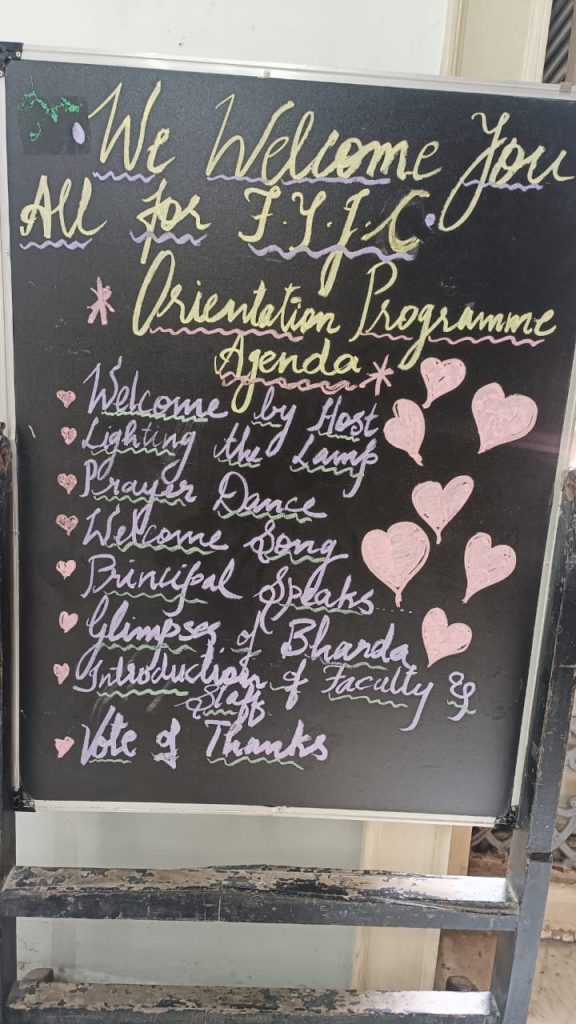 We Welcome You
All for F.Y.J.C.
* Orientation Programme
Agenda *
Welcome by Host
Lighting the Lamp
Prayer Dance
Welcome Song
Principal Speaks
Glimpses of Bharda
Introduction of Faculty &
Staff
Vote of Thanks